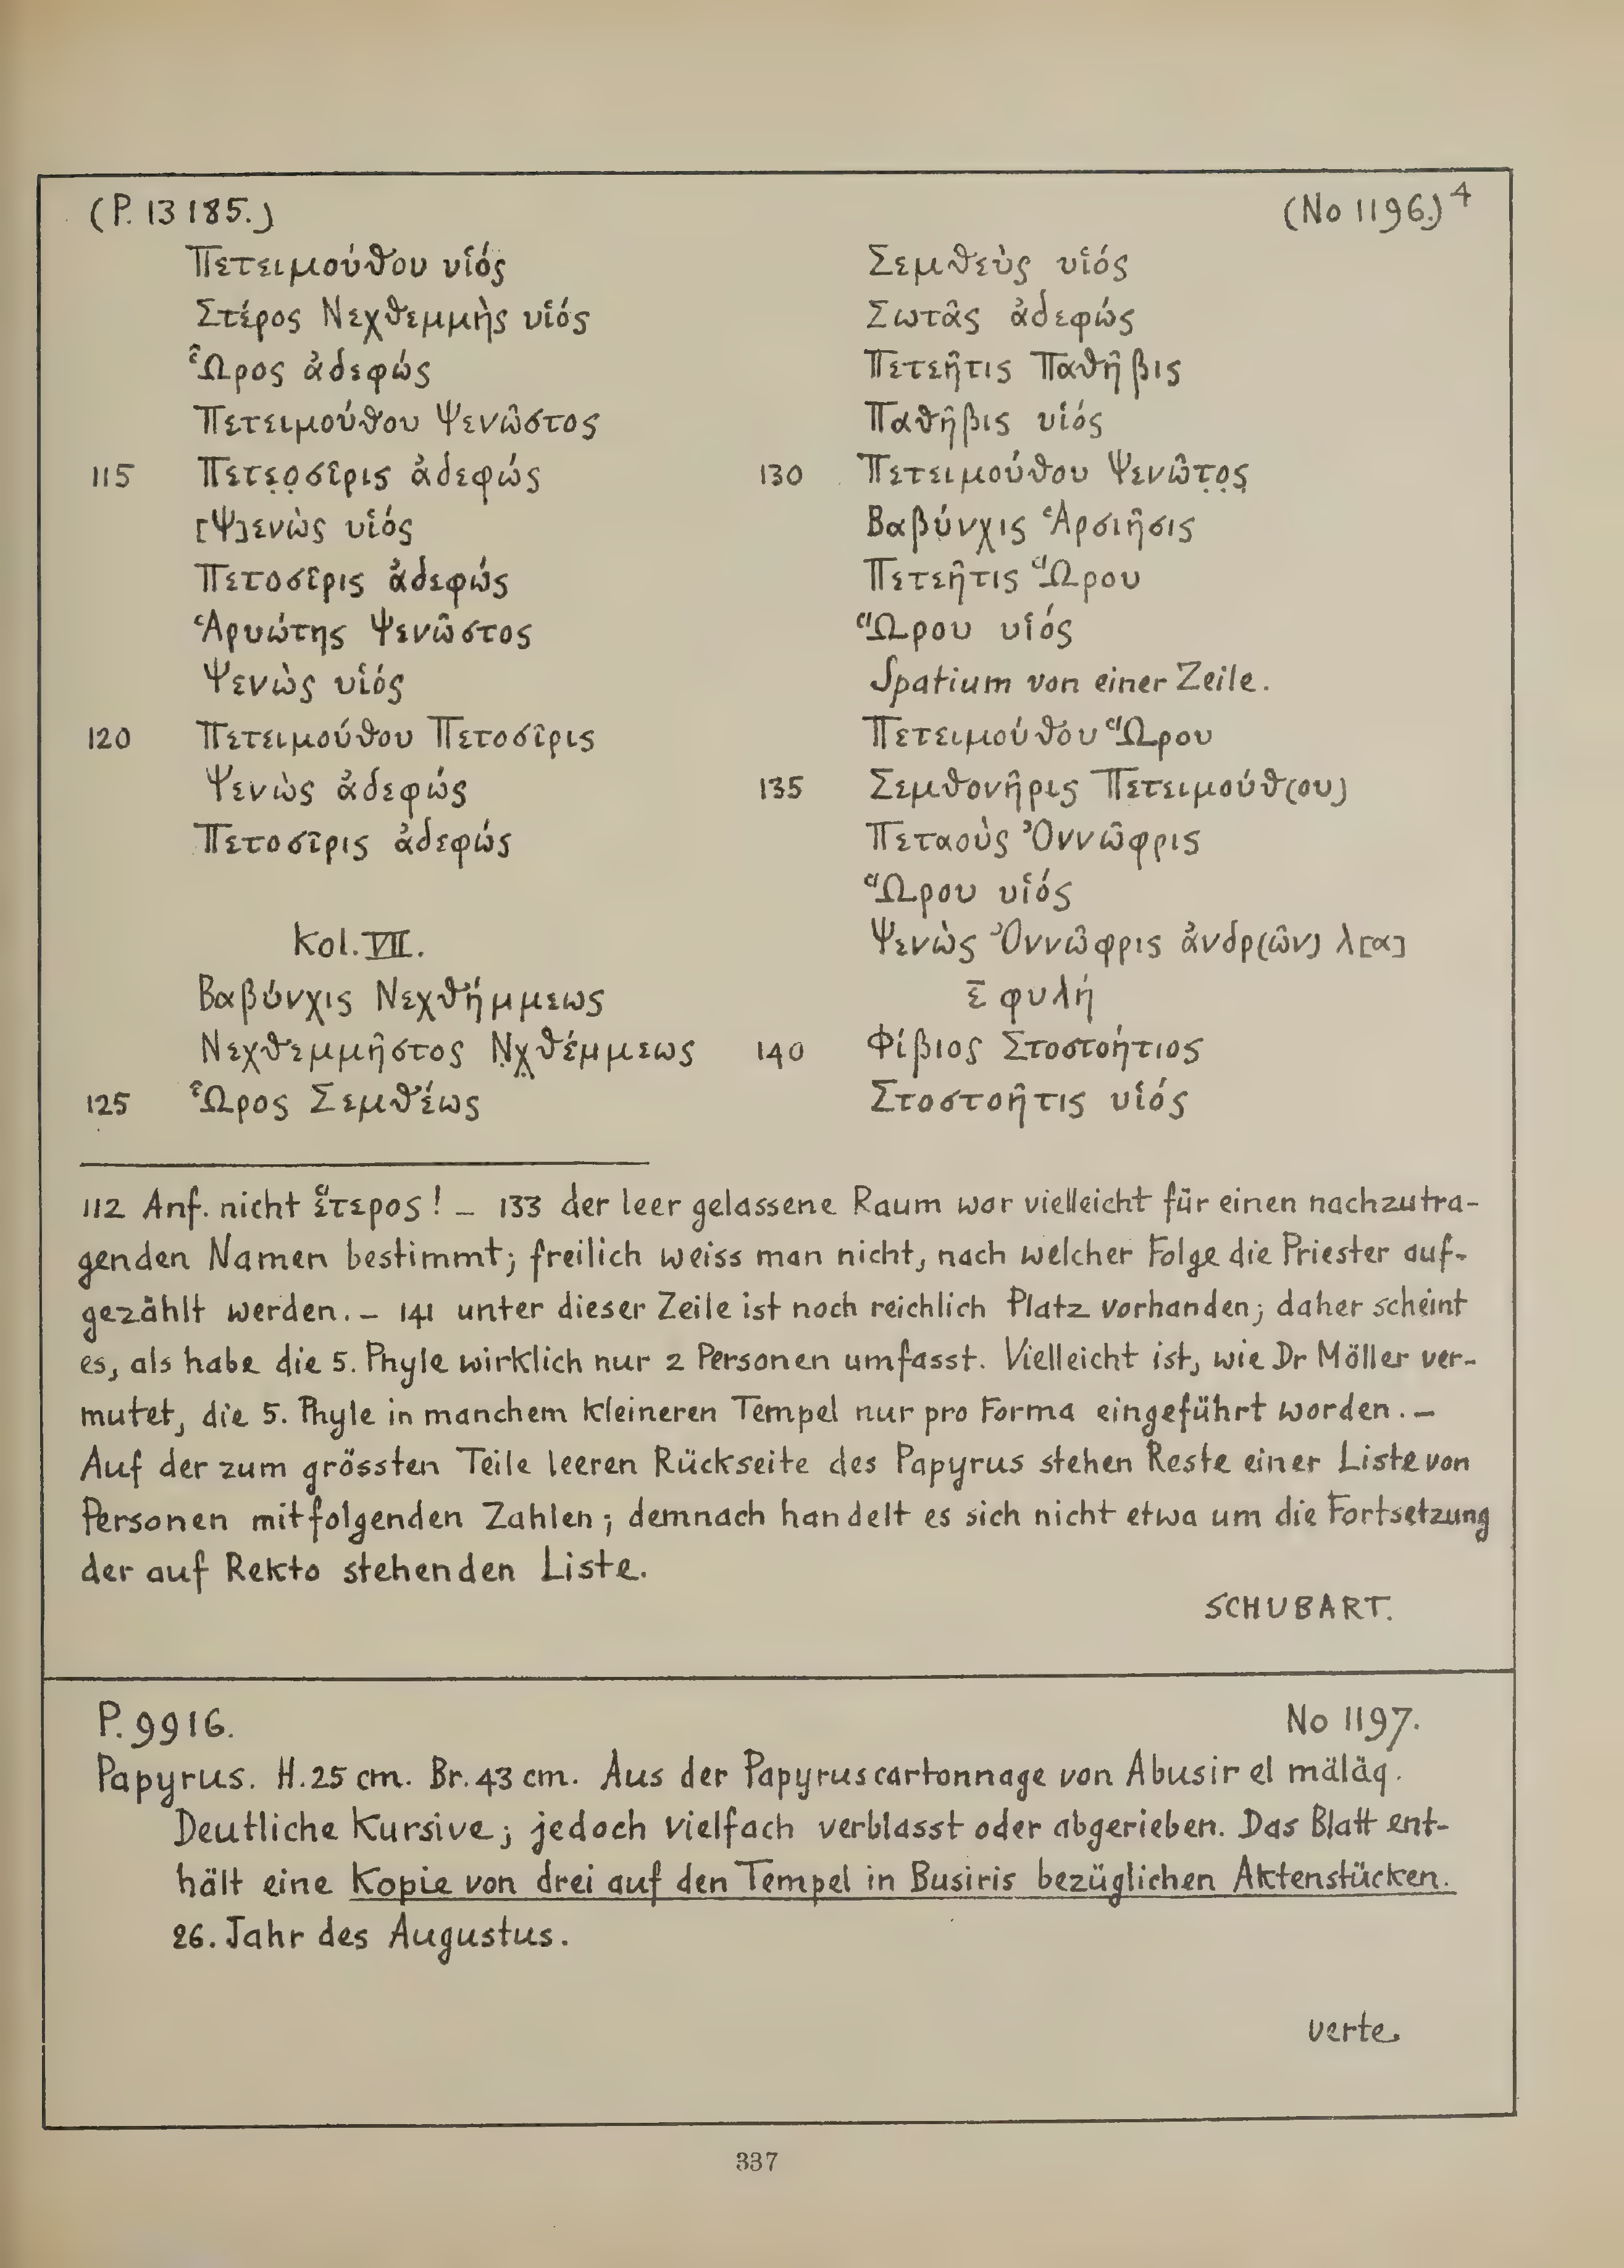 (P. 13185.)
(No 1196.)4
Πετειμούθου υἱός
Στέρος Νεχθεμμὴς υἱός
Ὧρος ἀδεφώς
Πετειμούθου Ψενῶστος
115 Πετẹọσῖρις ἀδεφώς
[Ψ]ενὼς υἱός
Πετοσῖρις ἀδεφώς
Ἁρυώτης Ψενῶστος
Ψενὼς υἱός
120 Πετειμούθου Πετοσῖρις
Ψενὼς ἀδεφώς
Πετοσῖρις ἀδεφώς
Kol. VII.
Βαβύνχις Νεχθήμμεως
Νεχθεμμῆστος Ν̣χ̣θέμμεως
125 Ὧρος Σεμθέως
Σεμθεὺς υἱός
Σωτᾶς ἀδεφώς
Πετεῆτις Παθῆβις
Παθῆβις υἱός
130 Πετειμούθου Ψενῶτ̣ο̣ς̣
Βαβύνχις Ἁρσιῆσις
Πετεῆτις Ὥρου
Ὥρου υἱός
Spatium von einer Zeile.
Πετειμούθου Ὥρου
135 Σεμθονῆρις Πετειμούθ(ου)
Πεταοὺς Ὀννῶφρις
Ὥρου υἱός
Ψενὼς Ὀννῶφρις ἀνδρ(ῶν) λ[α]
ε̄ φυλή
140 Φίβιος Στοστοήτιος
Στοστοῆτις υἱός
112 Anf. nicht ἕτερος! – 133 der leer gelassene Raum war vielleicht für einen nachzutra-
genden Namen bestimmt; freilich weiss man nicht, nach welcher Folge die Priester auf-
gezählt werden. – 141 unter dieser Zeile ist noch reichlich Platz vorhanden; daher scheint
es, als habe die 5. Phyle wirklich nur 2 Personen umfasst. Vielleicht ist, wie Dr Möller ver-
mutet, die 5. Phyle in manchem kleineren Tempel nur pro Forma eingeführt worden. –
Auf der zum grössten Teile leeren Rückseite des Papyrus stehen Reste einer Liste von
Personen mitfolgenden Zahlen; demnach handelt es sich nicht etwa um die Fortsetzung
der auf Rekto stehenden Liste.
SCHUBART.
P. 9916.
No 1197.
Papyrus. H. 25 cm. Br. 43 cm. Aus der Papyruscartonnage von Abusir el mäläq.
Deutliche Kursive; jedoch vielfach verblasst oder abgerieben. Das Blatt ent-
hält eine Kopie von drei auf den Tempel in Busiris bezüglichen Aktenstücken.
26. Jahr des Augustus.
verte.
337